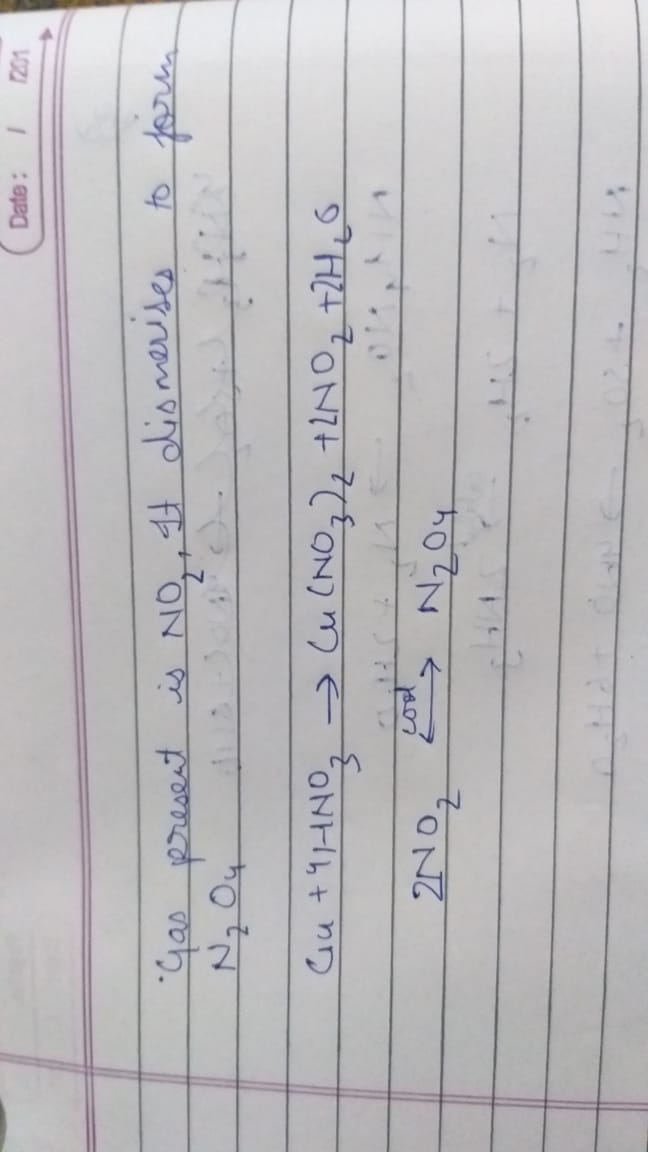 Date: / /201
Gas present is NO₂, It dismerises to form
N₂O₄
Cu + 4HNO₃ → Cu(NO₃)₂ + 2NO₂ + 2H₂O
2NO₂ <-cool-> N₂O₄